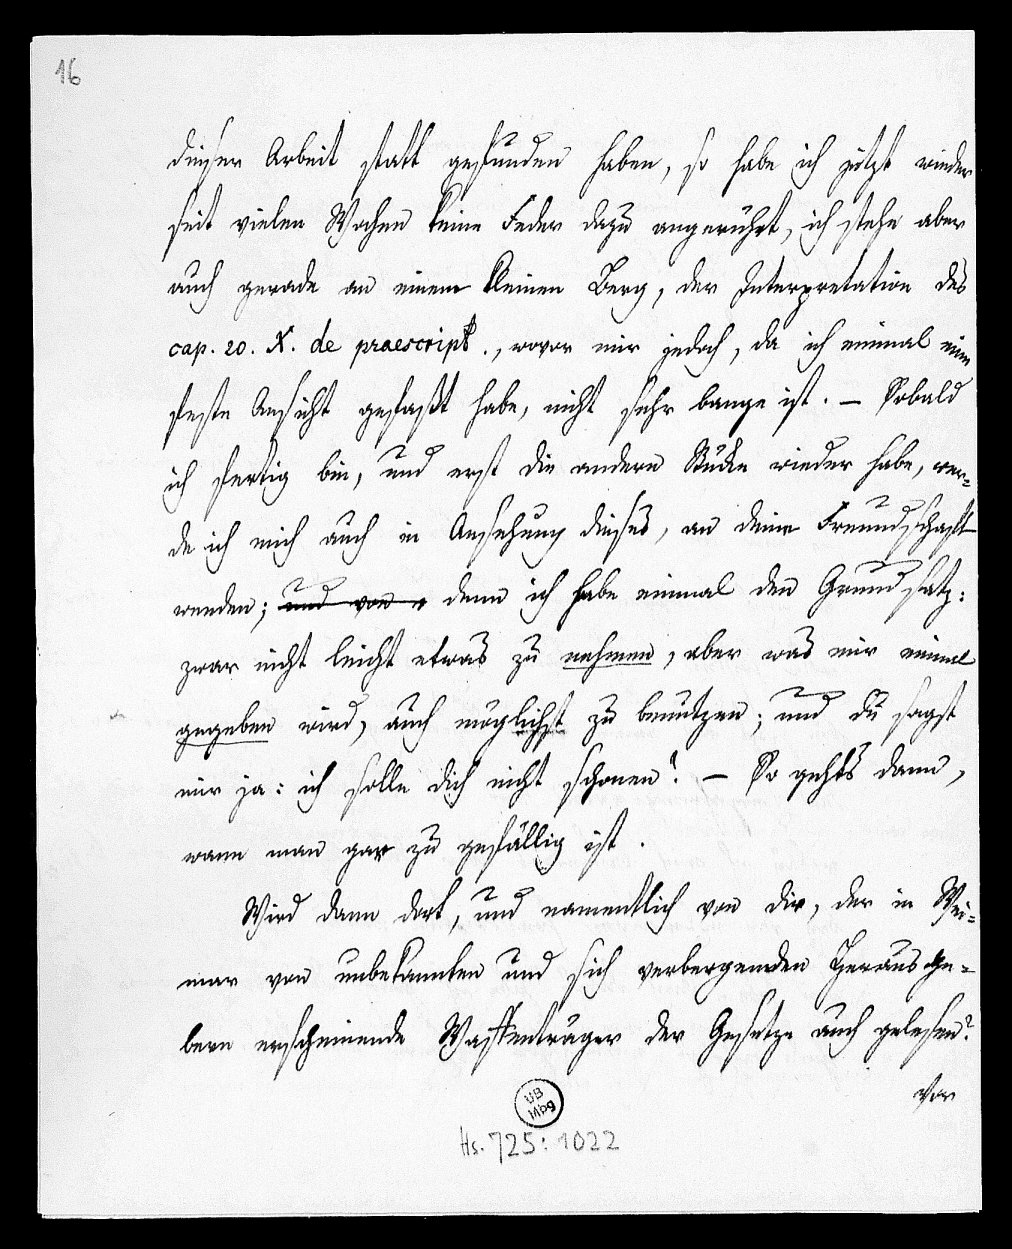 16
dieser Arbeit statt gefunden haben, so habe ich jetzt wieder
seit vielen Wochen keine Feder dazu angerührt, ich stehe aber
auch gerade an einem kleinen Berg, der Interpretation des
cap. 20. X. de praescript., wovor mir jedoch, da ich einmal eine
feste Ansicht gefaßt habe, nicht sehr bange ist. — Sobald
ich fertig bin, und erst die andern Stücke wieder habe, wer=
de ich mich auch in Ansehung dieses, an deine Freundschaft
wenden; und von denn ich habe einmal den Grundsatz:
zwar nicht leicht etwas zu nehmen, aber was mir einmal
gegeben wird, auch möglichst zu benutzen; und du sagst
mir ja: ich solle dich nicht schonen? — So gehts dann,
wann man gar zu gefällig ist.
Wird dann dort, und namentlich von dir, der in Wei=
mar von unbekannten und sich verbergenden Herausge=
bern erscheinende Waffenträger der Gesetze auch gelesen?
Vor
UB
Mbg
Hs. 725:1022